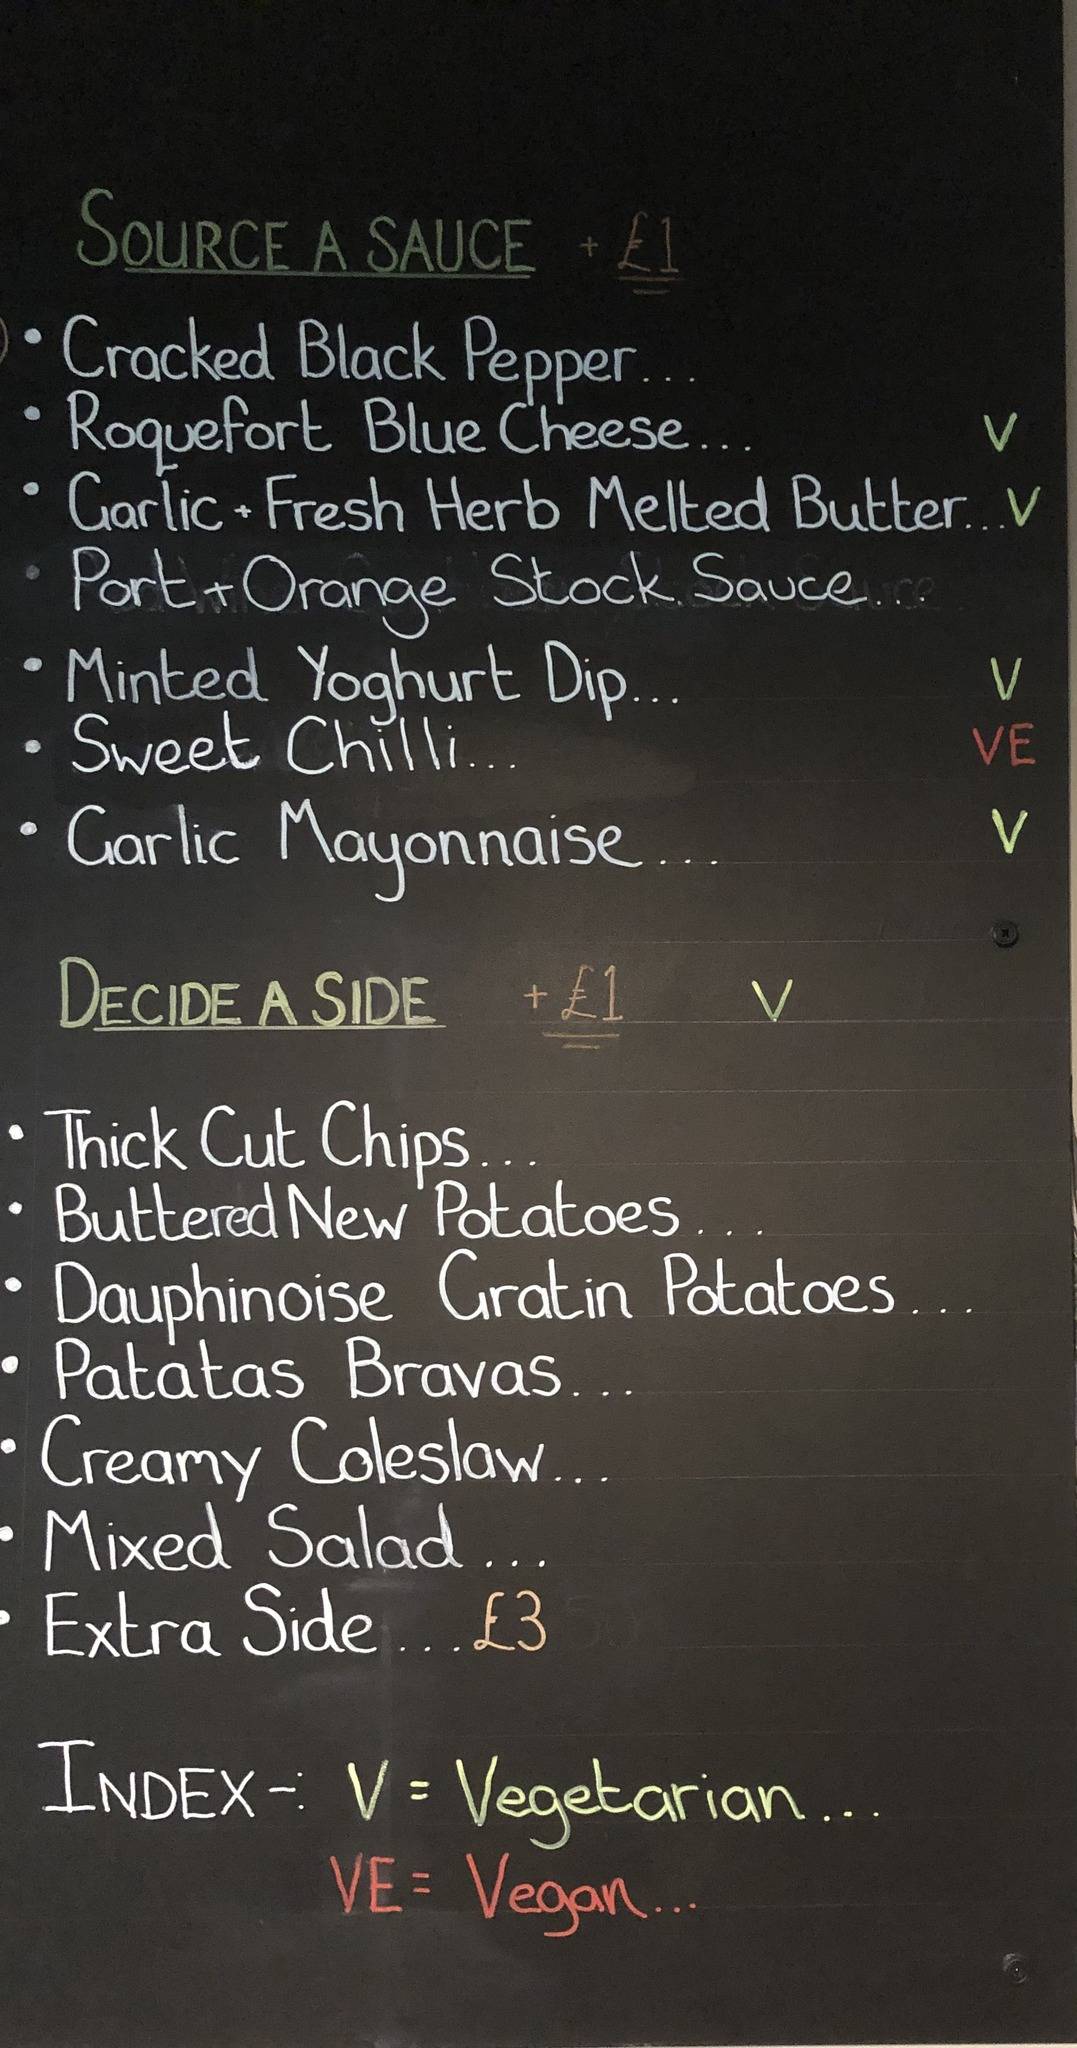 SOURCE A SAUCE + £1
• Cracked Black Pepper...
• Roquefort Blue Cheese... V
• Garlic + Fresh Herb Melted Butter... V
• Port + Orange Stock Sauce...
• Minted Yoghurt Dip... V
• Sweet Chilli... VE
• Garlic Mayonnaise... V
DECIDE A SIDE + £1 V
• Thick Cut Chips...
• Buttered New Potatoes...
• Dauphinoise Gratin Potatoes...
• Patatas Bravas...
• Creamy Coleslaw...
• Mixed Salad...
• Extra Side... £3
INDEX -: V = Vegetarian...
VE = Vegan...